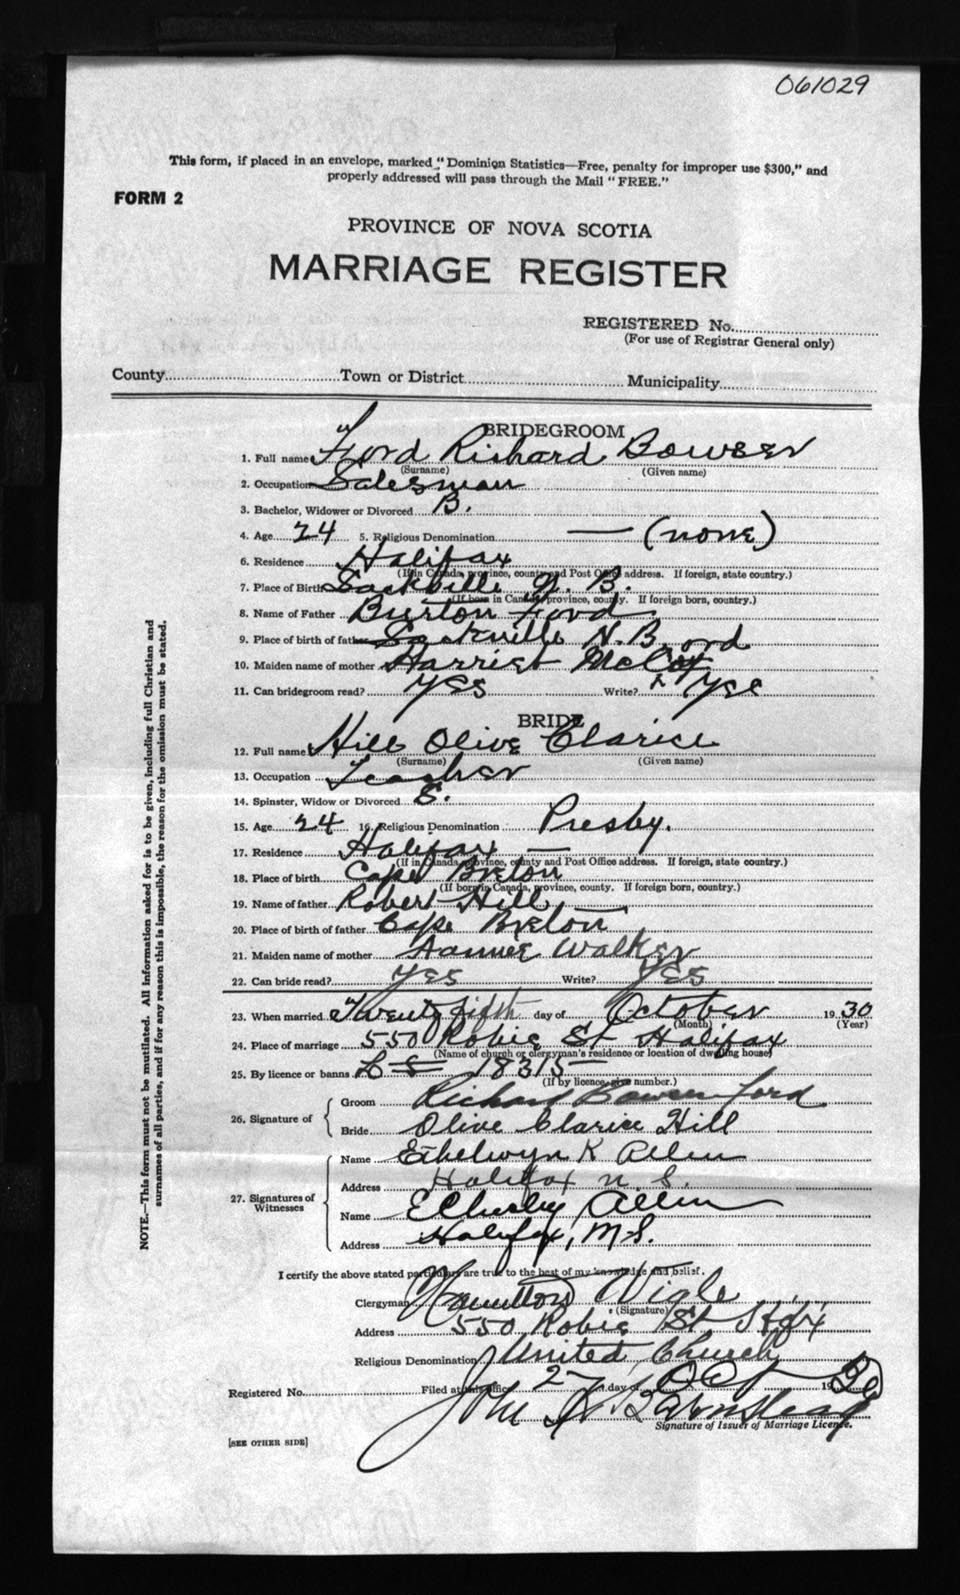 061029
This form, if placed in an envelope, marked "Dominion Statistics—Free, penalty for improper use $300," and
properly addressed will pass through the Mail "FREE."
FORM 2
PROVINCE OF NOVA SCOTIA
MARRIAGE REGISTER
REGISTERED No.
(For use of Registrar General only)
County Town or District Municipality
BRIDEGROOM
1. Full name Ford Richard Bowser
(Surname) (Given name)
2. Occupation Salesman
3. Bachelor, Widower or Divorced B.
4. Age 24 5. Religious Denomination — (none)
6. Residence Halifax
(If in Canada, province, county and Post Office address. If foreign, state country.)
7. Place of Birth Sackville N. B.
(If born in Canada, province, county. If foreign born, country.)
8. Name of Father Burton Ford
9. Place of birth of father Sackville N. B.
10. Maiden name of mother Harriet McCord
11. Can bridegroom read? Yes Write? Yes
BRIDE
12. Full name Hill Olive Clarice
(Surname) (Given name)
13. Occupation Teacher
14. Spinster, Widow or Divorced S.
15. Age 24 16. Religious Denomination Presby.
17. Residence Halifax —
(If in Canada, province, county and Post Office address. If foreign, state country.)
18. Place of birth Cape Breton
(If born in Canada, province, county. If foreign born, country.)
19. Name of father Robert Hill
20. Place of birth of father Cape Breton
21. Maiden name of mother Walker
22. Can bride read? Yes Write? Yes
23. When married Twenty fifth day of October 1930
(Month) (Year)
24. Place of marriage 550 Robie St Halifax
(Name of church or clergyman's residence or location of dwelling house)
25. By licence or banns 18315
(If by licence, give number.)
26. Signature of
Groom Richard Bowser Ford
Bride Olive Clarice Hill
27. Signatures of Witnesses
Name Ethelwyn K Allen
Address Halifax N. S.
Name Allen
Address Halifax, N.S.
I certify the above stated particulars are true to the best of my knowledge and belief.
Clergyman Hamilton Wigle
(Signature)
Address 550 Robie St Hfx
Religious Denomination United Church
Registered No. Filed at this office 27 day of Oct 1930
John H Barnstead
Signature of Issuer of Marriage License.
[SEE OTHER SIDE]
NOTE.—This form must not be mutilated. All information asked for is to be given, including full Christian and
surnames of all parties, and if for any reason this is impossible, the reason for the omission must be stated.